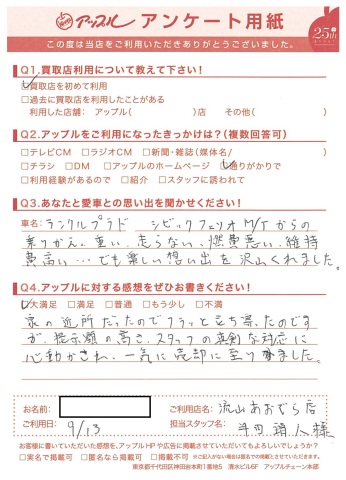 アップル アンケート用紙
25th
この度は当店をご利用いただきありがとうございました。
Q1.買取店利用について教えて下さい！
☑買取店を初めて利用
□過去に買取店を利用したことがある
利用した店舗： アップル（ ）店 その他（ ）
Q2.アップルをご利用になったきっかけは？（複数回答可）
□テレビCM □ラジオCM □新聞・雑誌（媒体名/ ）
□チラシ □DM □アップルのホームページ ☑通りがかりで
□利用経験があるので □紹介 □スタッフに誘われて
Q3.あなたと愛車との思い出を聞かせください！
車名：ランクルプラド シビックフェリオM/Tからの
乗りかえ。重い、走らない、燃費悪い、維持
費高い…でも楽しい想い出を沢山くれました。
Q4.アップルに対する感想をぜひお書きください！
☑大満足 □満足 □普通 □もう少し □不満
家の近所だったのでフラッと立ち寄ったのです
が、提示額の高さ、スタッフの真剣な対応に
心動かされ、一気に売却に至りました。
お名前： ご利用店名：流山おおぞら店
ご利用日： 9/13 担当スタッフ名： 様
お客様に書いていただいた感想を、アップルHPや広告に掲載させていただいてもよろしいでしょうか？
□実名で掲載可 □匿名なら掲載可 □掲載不可 ※ご記入がない場合は匿名での掲載とさせていただきます。
東京都千代田区神田台本町1番地5 清水ビル6F アップルチェーン本部